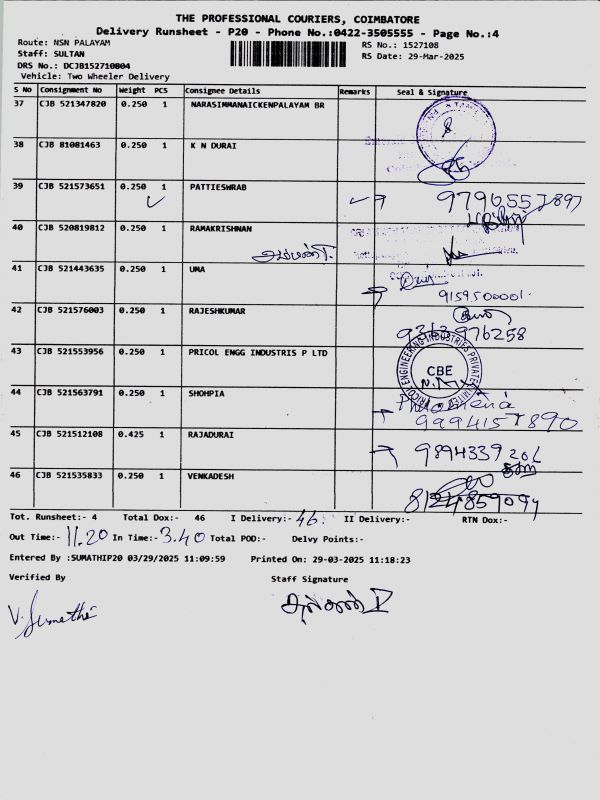 THE PROFESSIONAL COURIERS, COIMBATORE
Delivery Runsheet - P20 - Phone No.:0422-3505555 - Page No.:4
Route: NSN PALAYAM
RS No.: 1527108
Staff: SULTAN
RS Date: 29-Mar-2025
DRS No.: DCJB152710804
Vehicle: Two Wheeler Delivery
S No Consignment No Weight PCS Consignee Details Remarks Seal & Signature
37 CJB 521347820 0.250 1 NARASIMMANAICKENPALAYAM BR
38 CJB 81081463 0.250 1 K N DURAI
39 CJB 521573651 0.250 1 PATTIESWRAB
40 CJB 520819812 0.250 1 RAMAKRISHNAN
41 CJB 521443635 0.250 1 UMA
9159500001
42 CJB 521576003 0.250 1 RAJESHKUMAR
43 CJB 521553956 0.250 1 PRICOL ENGG INDUSTRIS P LTD
PRICOL ENGINEERING INDUSTRIES PRIVATE LIMITED
CBE
44 CJB 521563791 0.250 1 SHOHPIA
45 CJB 521512108 0.425 1 RAJADURAI
46 CJB 521535833 0.250 1 VENKADESH
8124859094
Tot. Runsheet:- 4 Total Dox:- 46 I Delivery:- 46 II Delivery:- RTN Dox:-
Out Time:- 11.20 In Time:- 3.40 Total POD:- Delvy Points:-
Entered By :SUMATHIP20 03/29/2025 11:09:59 Printed On: 29-03-2025 11:18:23
Verified By Staff Signature
V. Sumathi